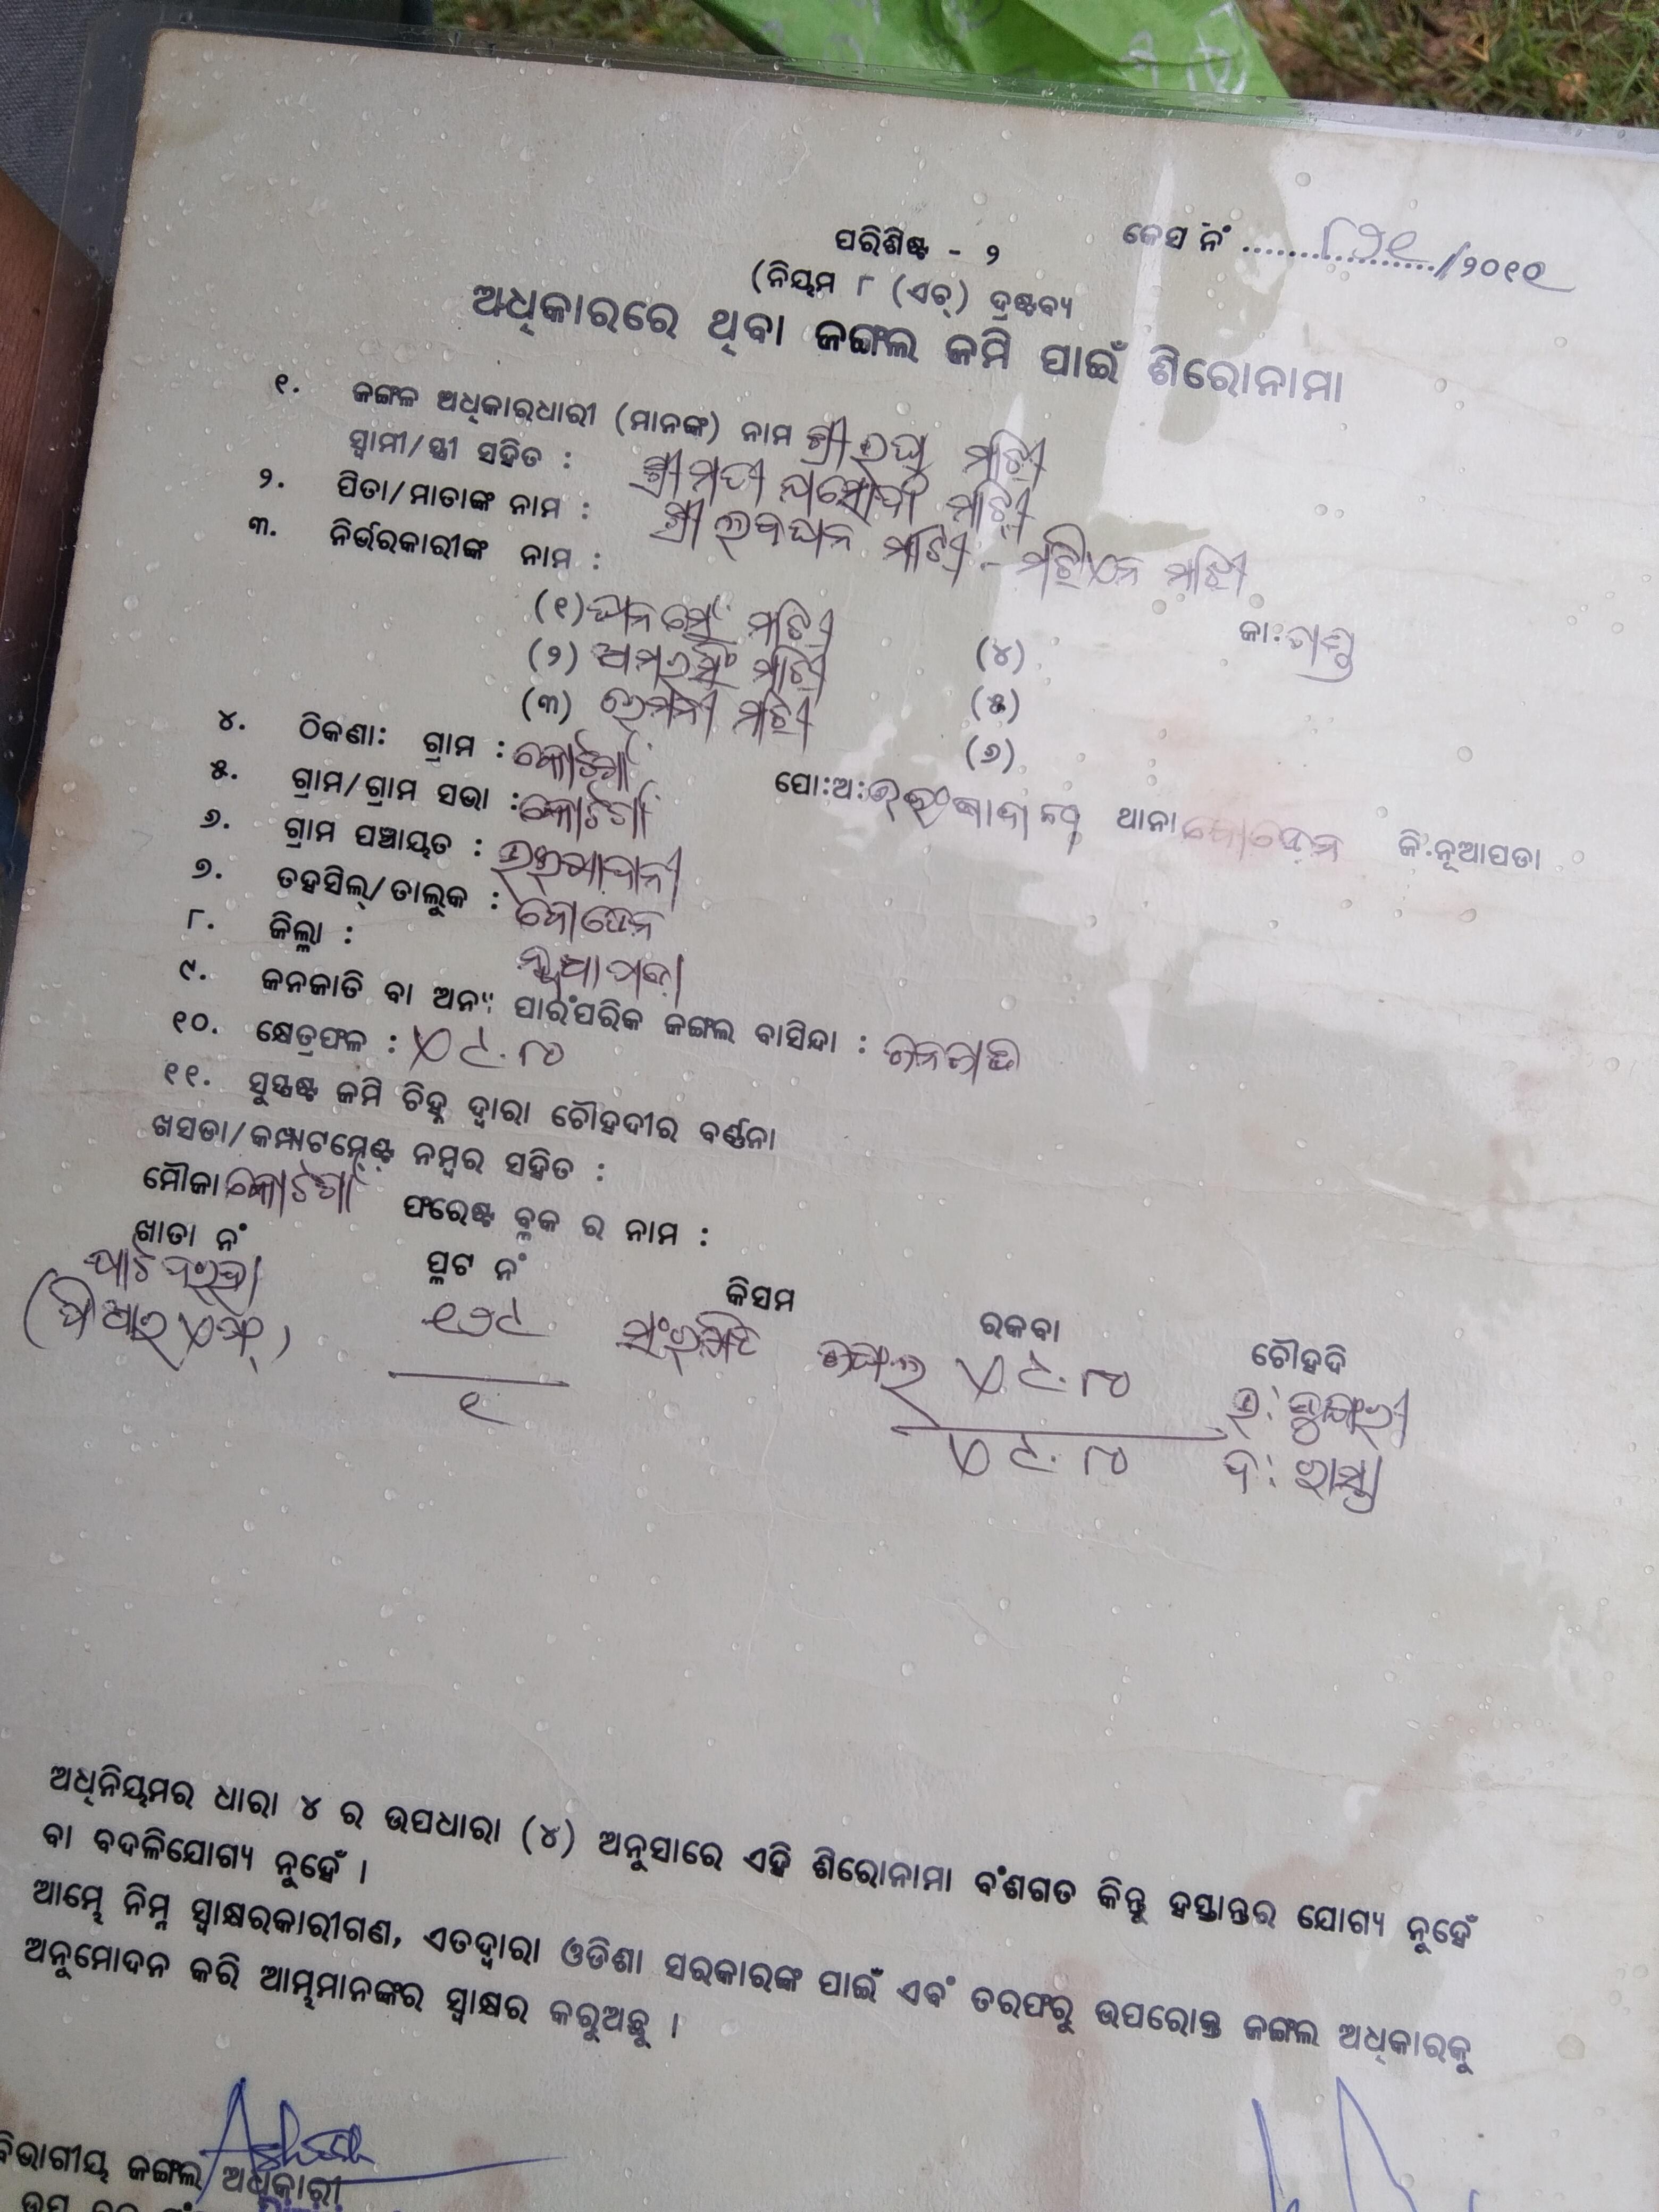 ପରିଶିଷ୍ଟ - ୨
କେସ ନଂ ................/୨୦୧୧
(ନିୟମ ୮ (ଏଚ୍) ଦ୍ରଷ୍ଟବ୍ୟ
ଅଧିକାରରେ ଥିବା ଜଙ୍ଗଲ ଜମି ପାଇଁ ଶିରୋନାମା
୧. ଜଙ୍ଗଳ ଅଧିକାରଧାରୀ (ମାନଙ୍କ) ନାମ ଶ୍ରୀ ରଘୁ ମାଝି
ସ୍ୱାମୀ/ସ୍ତ୍ରୀ ସହିତ : ଶ୍ରୀମତୀ ଯସୋଦା ମାଝି
୨. ପିତା/ମାତାଙ୍କ ନାମ : ଶ୍ରୀ ମାଝି - ମାଝି
୩. ନିର୍ଭରକାରୀଙ୍କ ନାମ :
ଜା: ଗଣ୍ଡ
(୧) ମାଝି
(୨) ଅମରସିଂ ମାଝି (୪)
(୩) ହେମନୀ ମାଝି (୫)
(୬)
୪. ଠିକଣା: ଗ୍ରାମ : କୋଟଗାଁ ପୋ:ଅ: ଥାନା ବୋଡେନ ଜି:ନୂଆପଡା
୫. ଗ୍ରାମ/ଗ୍ରାମ ସଭା : କୋଟଗାଁ
୬. ଗ୍ରାମ ପଞ୍ଚାୟତ :
୭. ତହସିଲ୍/ତାଲୁକ : ବୋଡେନ
୮. ଜିଲ୍ଲା : ନୂଆପଡା
୯. ଜନଜାତି ବା ଅନ୍ୟ ପାରଂପରିକ ଜଙ୍ଗଲ ବାସିନ୍ଦା : ଜନଜାତି
୧୦. କ୍ଷେତ୍ରଫଳ : ଏ ୯.୮୦
୧୧. ସୁସ୍ପଷ୍ଟ ଜମି ଚିହ୍ନ ଦ୍ୱାରା ଚୌହଦୀର ବର୍ଣ୍ଣନା
ଖସଡା/କମ୍ପାଟମେଣ୍ଟ ନମ୍ବର ସହିତ :
ମୌଜା କୋଟଗାଁ ଫରେଷ୍ଟ ବ୍ଲକ ର ନାମ :
ଖାତା ନଂ ପ୍ଲଟ ନଂ କିସମ ରକବା ଚୌହଦି
(ପିଆରଏଫ୍) ୧୬୯ ସଂରକ୍ଷିତ ଜଙ୍ଗଲ ଏ ୯.୮୦ ଉ: ଡୁଙ୍ଗରୀ
୧ ଏ ୯.୮୦ ଦ: ରାସ୍ତା
ଅଧିନିୟମର ଧାରା ୪ ର ଉପଧାରା (୪) ଅନୁସାରେ ଏହି ଶିରୋନାମା ବଂଶଗତ କିନ୍ତୁ ହସ୍ତାନ୍ତର ଯୋଗ୍ୟ ନୁହେଁ
ବା ବଦଳିଯୋଗ୍ୟ ନୁହେଁ ।
ଆମ୍ଭେ ନିମ୍ନ ସ୍ୱାକ୍ଷରକାରୀଗଣ, ଏତଦ୍ୱାରା ଓଡିଶା ସରକାରଙ୍କ ପାଇଁ ଏବଂ ତରଫରୁ ଉପରୋକ୍ତ ଜଙ୍ଗଲ ଅଧିକାରକୁ
ଅନୁମୋଦନ କରି ଆମ୍ଭମାନଙ୍କର ସ୍ୱାକ୍ଷର କରୁଅଛୁ ।
ବିଭାଗୀୟ ଜଙ୍ଗଲ ଅଧିକାରୀ